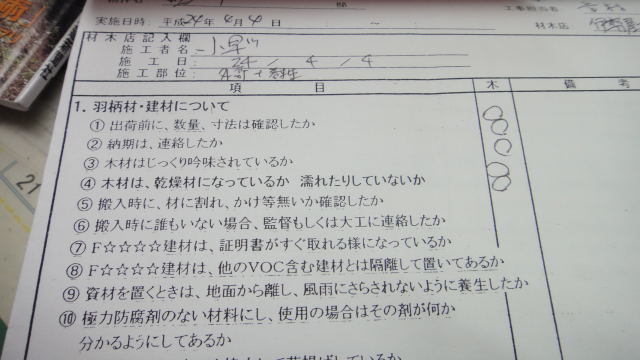 実施日時: 平成24年4月4日 ~
材木店
材木店記入欄
施工者名
施工日 24 / 4 / 4
施工部位
項目 木 備考
1. 羽柄材・建材について
① 出荷前に、数量、寸法は確認したか
② 納期は、連絡したか
③ 木材はじっくり吟味されているか
④ 木材は、乾燥材になっているか 濡れたりしていないか
⑤ 搬入時に、材に割れ、かけ等無いか確認したか
⑥ 搬入時に誰もいない場合、監督もしくは大工に連絡したか
⑦ F☆☆☆☆建材は、証明書がすぐ取れる様になっているか
⑧ F☆☆☆☆建材は、他のVOC含む建材とは隔離して置いてあるか
⑨ 資材を置くときは、地面から離し、風雨にさらされないように養生したか
⑩ 極力防腐剤のない材料にし、使用の場合はその剤が何か
分かるようにしてあるか
21